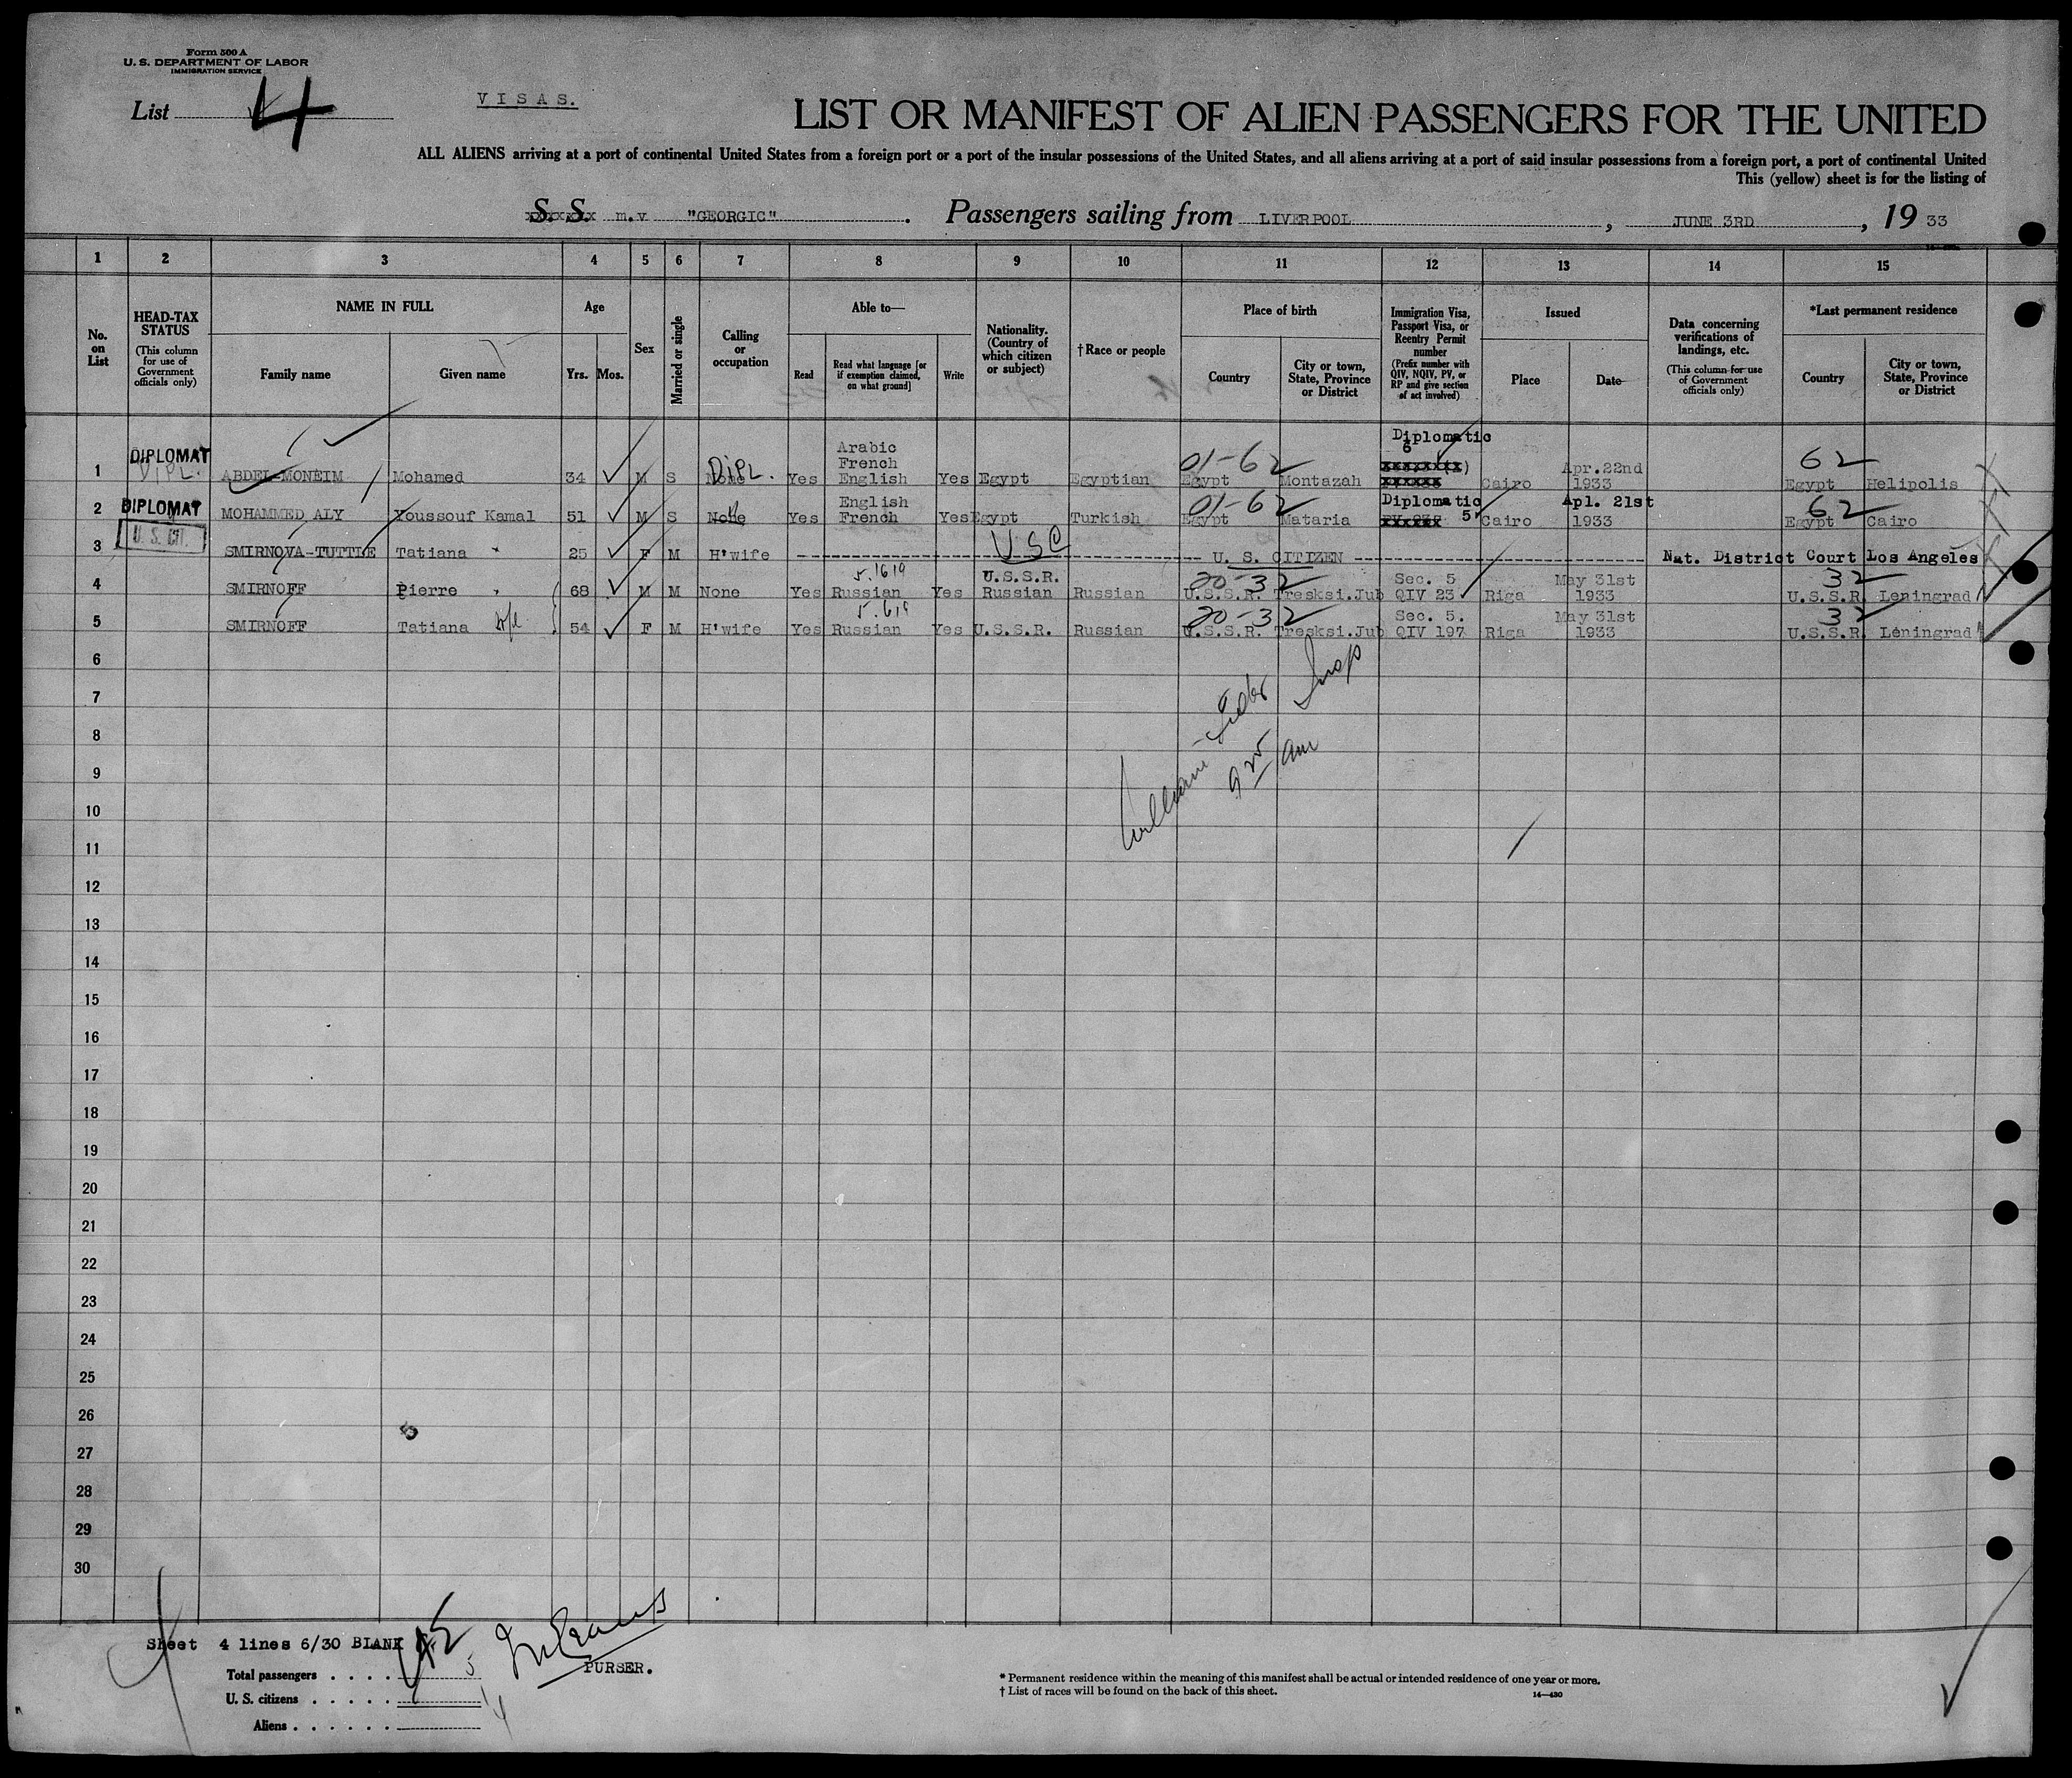 Form 500 A
U. S. DEPARTMENT OF LABOR
IMMIGRATION SERVICE
List 4
VISAS.
LIST OR MANIFEST OF ALIEN PASSENGERS FOR THE UNITED
ALL ALIENS arriving at a port of continental United States from a foreign port or a port of the insular possessions of the United States, and all aliens arriving at a port of said insular possessions from a foreign port, a port of continental United
This (yellow) sheet is for the listing of
S. S. m.v "GEORGIC". Passengers sailing from LIVERPOOL, JUNE 3RD, 19 33
1 2 3 4 5 6 7 8 9 10 11 12 13 14 15
No. on List
HEAD-TAX STATUS (This column for use of Government officials only)
NAME IN FULL
Family name
Given name
Age
Yrs. Mos.
Sex
Married or single
Calling or occupation
Able to—
Read
Read what language [or if exemption claimed, on what ground]
Write
Nationality. (Country of which citizen or subject)
†Race or people
Place of birth
Country
City or town, State, Province or District
Immigration Visa, Passport Visa, or Reentry Permit number (Prefix number with QIV, NQIV, PV, or RP and give section of act involved)
Issued
Place
Date
Data concerning verifications of landings, etc. (This column for use of Government officials only)
*Last permanent residence
Country
City or town, State, Province or District
1 DIPLOMAT DIPL. ABDEL-MONEIM Mohamed 34 M S None DIPL. Yes Arabic French English Yes Egypt Egyptian 01-62 Egypt Montazah Diplomatic 6 Cairo Apr.22nd 1933 62 Egypt Helipolis
2 DIPLOMAT MOHAMMED ALY Youssouf Kamal 51 M S None Yes English French Yes Egypt Turkish 01-62 Egypt Mataria Diplomatic 5 Cairo Apl. 21st 1933 62 Egypt Cairo
3 U. S. CIT. SMIRNOVA-TUTTLE Tatiana 25 F M H'wife USC U. S. CITIZEN Nat. District Court Los Angeles
4 SMIRNOFF Pierre 68 M M None Yes Russian Yes U.S.S.R. Russian Russian 20-32 U.S.S.R. Treski.Jub Sec. 5 QIV 23 Riga May 31st 1933 32 U.S.S.R Leningrad
5 SMIRNOFF Tatiana 54 F M H'wife Yes Russian Yes U.S.S.R. Russian 20-32 U.S.S.R. Treski.Jub Sec. 5. QIV 197 Riga May 31st 1933 32 U.S.S.R Leningrad
6
7
8
9
10
11
12
13
14
15
16
17
18
19
20
21
22
23
24
25
26
27
28
29
30
Sheet 4 lines 6/30 BLANK
Total passengers . . . . 5
U. S. citizens . . . . . 1
Aliens . . . . . . 4
PURSER.
* Permanent residence within the meaning of this manifest shall be actual or intended residence of one year or more.
† List of races will be found on the back of this sheet.
14—430